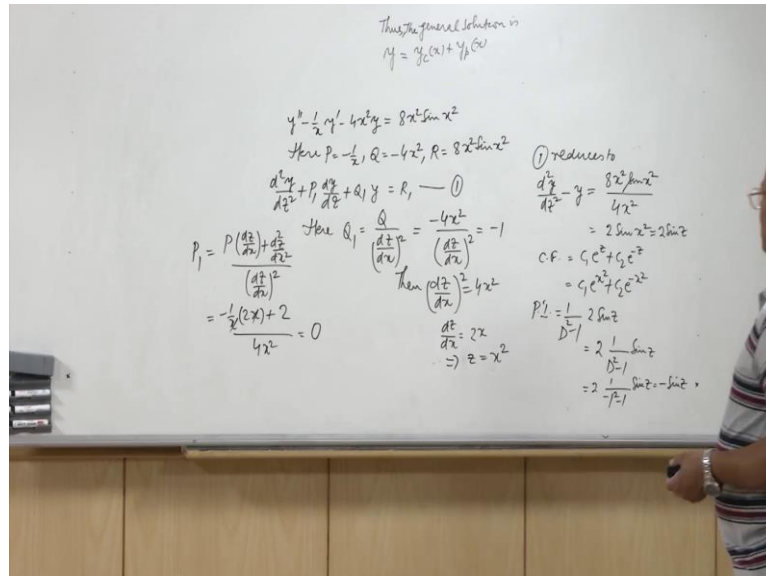 Thus, the general solution is
y = y_c(x) + y_p(x)
y'' - 1/x y' - 4x²y = 8x² Sin x²
Here P = -1/x, Q = -4x², R = 8x² Sin x²
d²y/dz² + P₁ dy/dz + Q₁ y = R₁ — ①
P₁ = (P(dz/dx) + d²z/dx²) / (dz/dx)²
= (-1/x (2x) + 2) / 4x² = 0
Here Q₁ = Q / (dz/dx)² = -4x² / (dz/dx)² = -1
Then (dz/dx)² = 4x²
dz/dx = 2x
⇒ z = x²
① reduces to
d²y/dz² - y = 8x² Sin x² / 4x²
= 2 Sin x² = 2 Sin z
C.F. = c₁e^z + c₂e^-z
= c₁e^x² + c₂e^-x²
P.I. = 1/(D²-1) 2 Sin z
= 2 1/(D²-1) Sin z
= 2 1/(-1²-1) Sin z = -Sin z